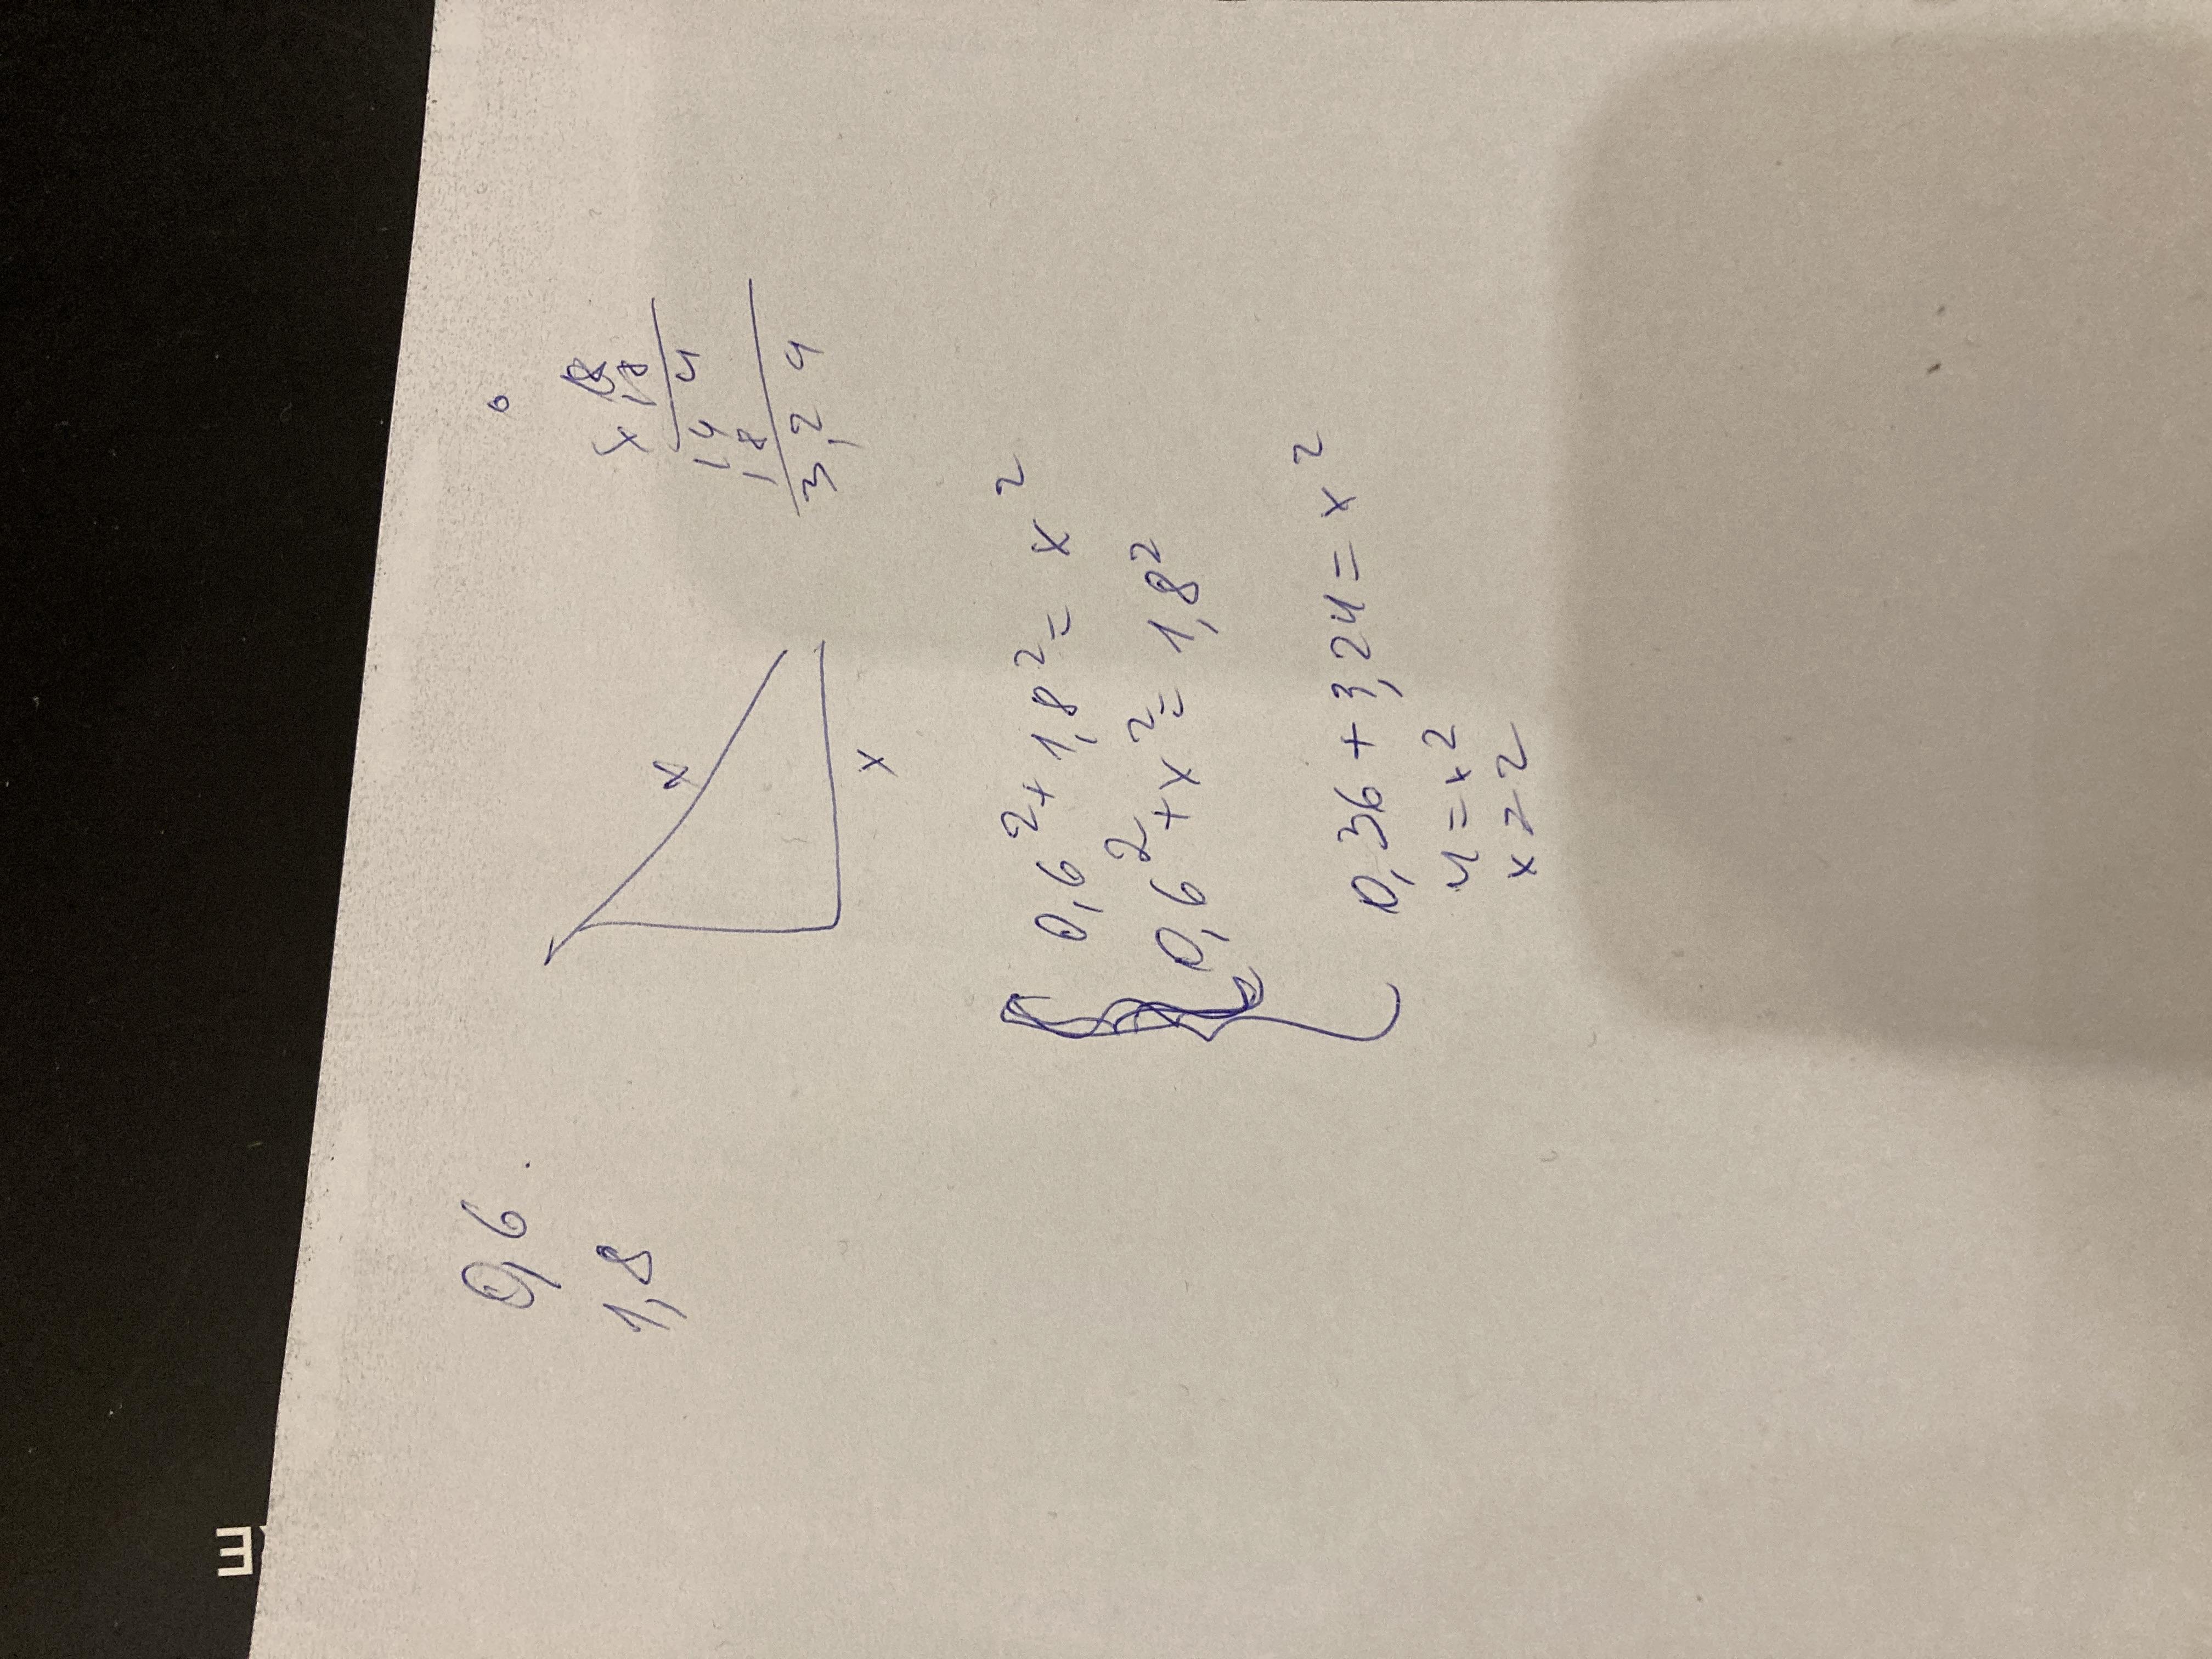 0,6
1,8
x 18
18
144
18
3,24
x
x
0,6²+1,8²=x²
0,6²+x²=1,8²
0,36+3,24=x²
4=x²
x=2